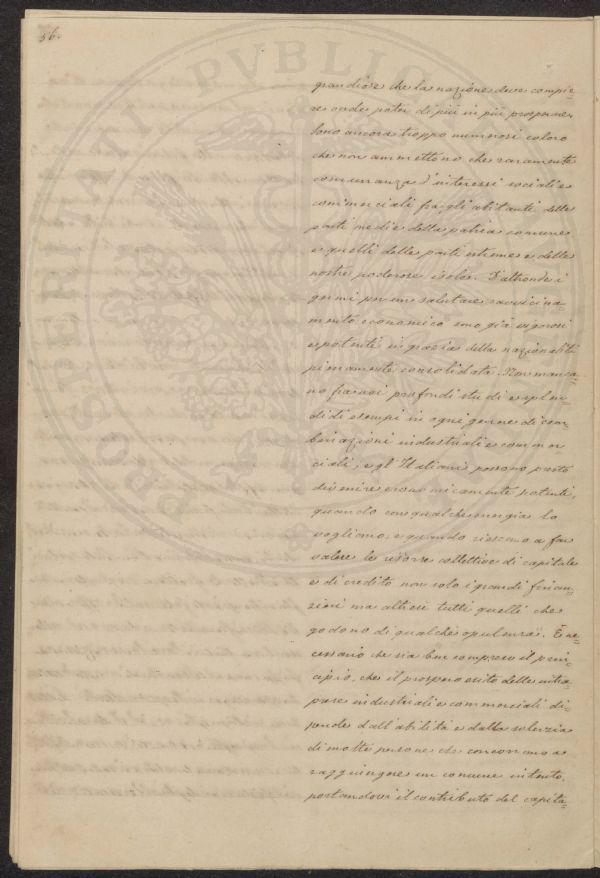 56.
grandiose che la nazione deve compie=
re onde poter di più in più prosperare.
Sono ancora troppo numerosi coloro
che non ammettono che raramente
comunanza d'interessi sociali e
commerciali fra gli abitanti delle
parti medie della patria comune
e quelli delle parti estreme e delle
nostre poderose isole. D'altronde i
germi per un salutare ravvicina=
mento economico sono già vigorosi
e potenti in grazia della nazionalità
pienamente consolidata. Non manca=
no fra noi profondi studi e splen=
didi esempi in ogni genere di com=
binazioni industriali e commer=
ciali; e gl'Italiani possono presto
divenire economicamente potenti,
quando con qualche energia lo
vogliano; e quando riescano a far
valere le risorse collettive di capitale
e di credito non solo i grandi finan=
zieri ma altresì tutti quelli che
godono di qualche opulenza. È ne=
cessario che sia ben compreso il prin=
cipio, che il prospero esito delle intra=
prese industriali e commerciali di=
pende dall'abilità e dalla solerzia
di molte persone che concorrano a
raggiungere un comune intento,
portandovi il contributo del capita=
PVBLIC
PROSPERITATI